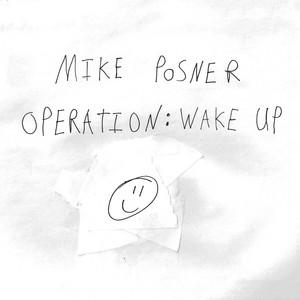 MIKE POSNER
OPERATION: WAKE UP